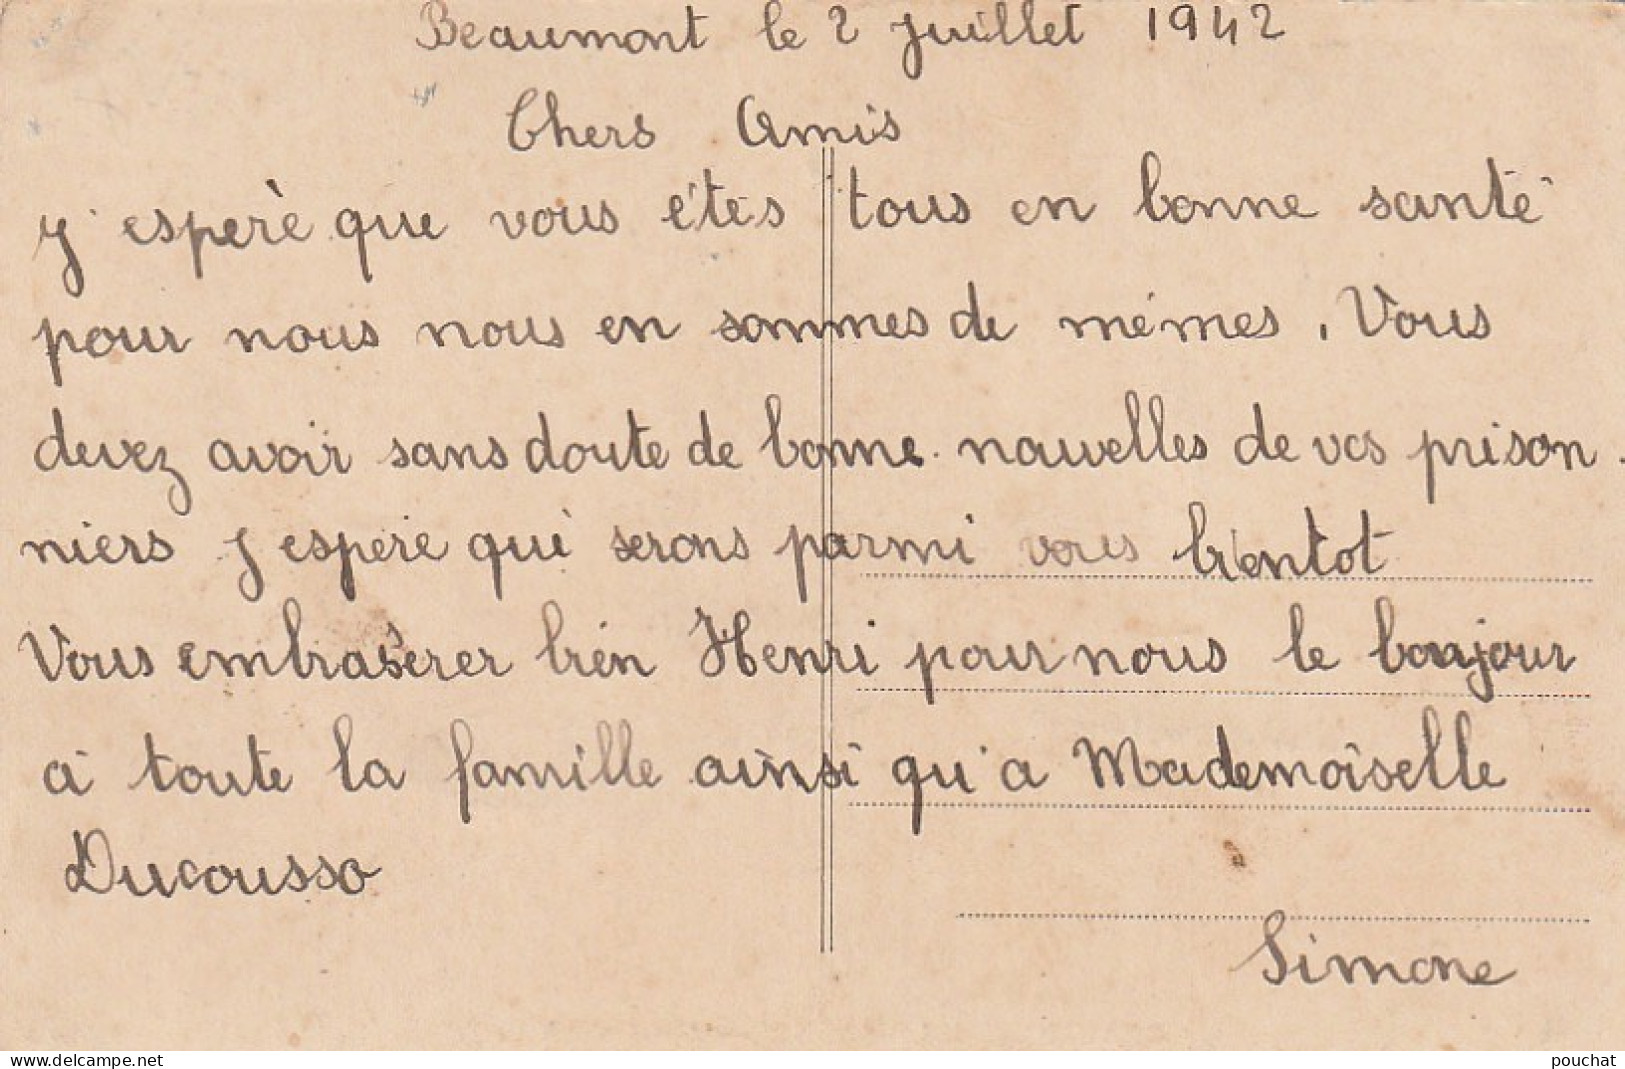 Beaumont le 2 Juillet 1942
Chers Amis
J'esperè que vous étes tous en bonne santé
pour nous nous en sommes de mémes. Vous
devez avoir sans doute de bonne nouvelles de vos prison-
niers J espere qui serons parmi vous bientot
Vous embraserer bien Henri pour nous le bonjour
a toute la famille ainsi qu'a Mademoiselle
Ducousso
Simone
www.delcampe.net
pouchat